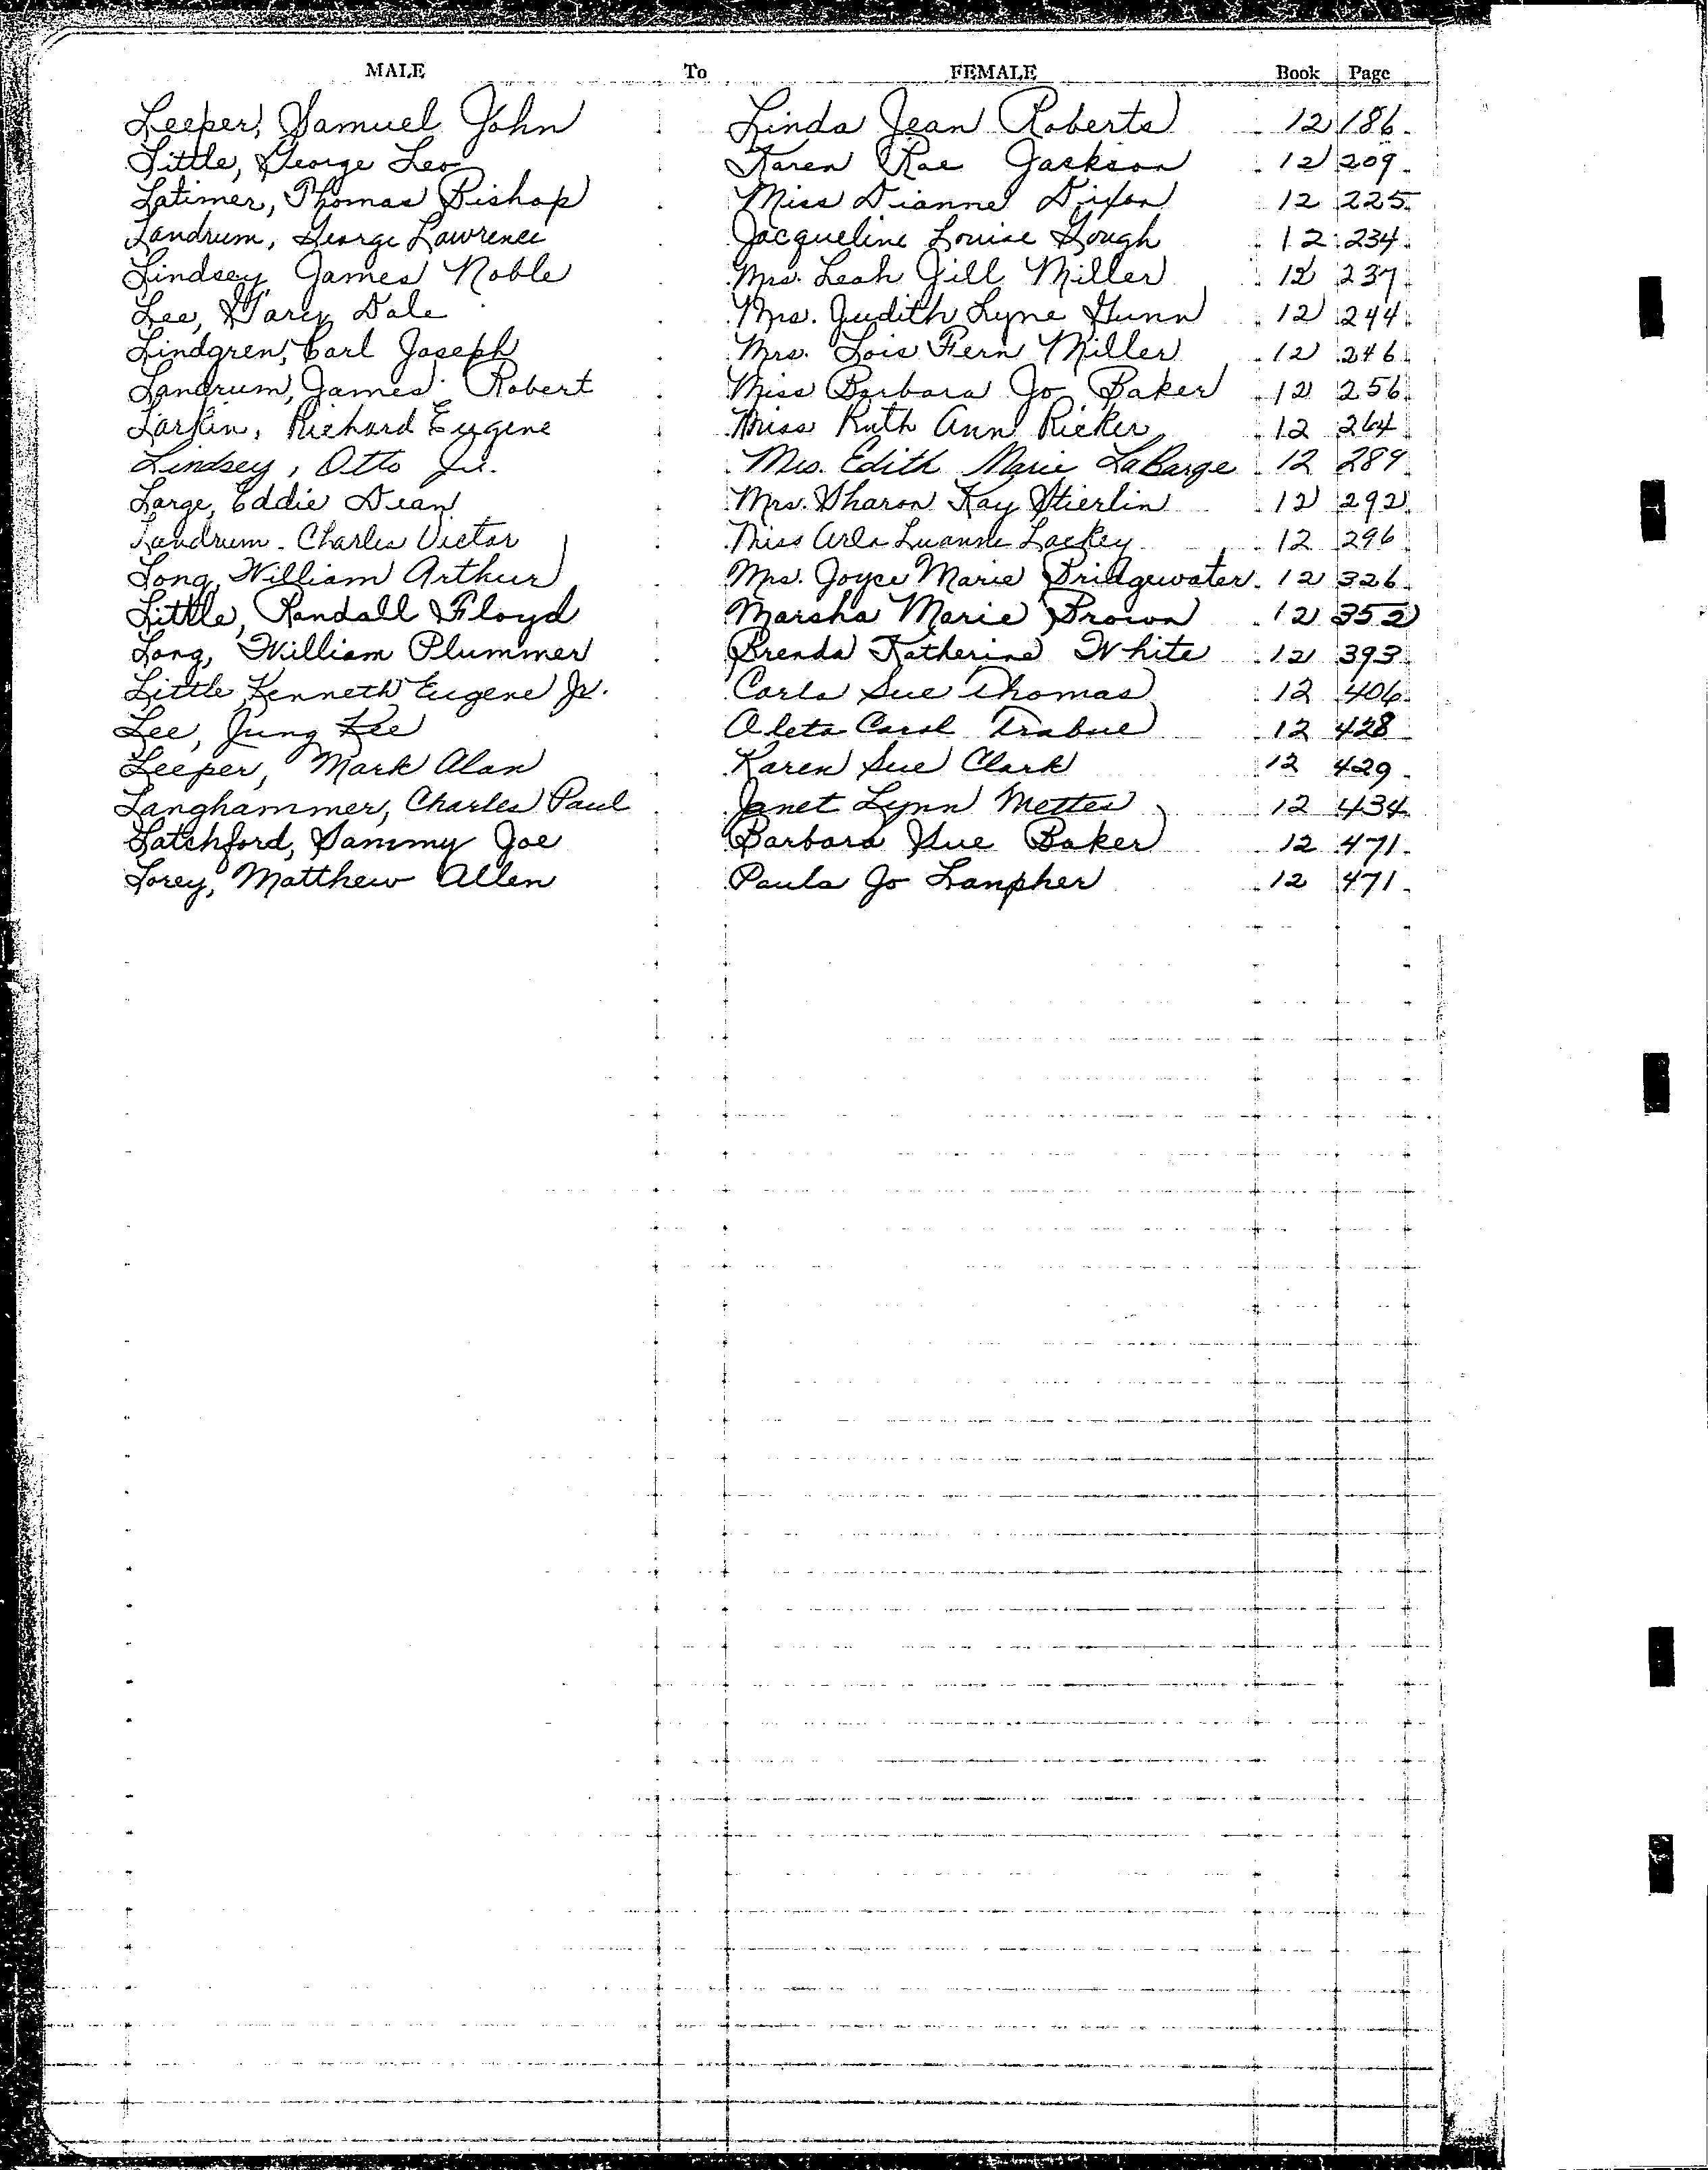 MALE To FEMALE Book Page
Leeper, Samuel John Linda Jean Roberts 12 186
Little, George Leo Karen Rae Jackson 12 209
Latimer, Thomas Bishop Miss Dianne Dixon 12 225
Landrum, George Lawrence Jacqueline Louise Gough 12 234
Lindsey, James Noble Mrs. Leah Jill Miller 12 237
Lee, Gary Dale Mrs. Judith Lyne Gunn 12 244
Lindgren, Carl Joseph Mrs. Lois Fern Miller 12 246
Landrum, James Robert Miss Barbara Jo Baker 12 256
Larkin, Richard Eugene Miss Ruth Ann Ricker 12 264
Lindsey, Otto Jr. Mrs. Edith Marie LaBarge 12 289
Large, Eddie Dean Mrs. Sharon Kay Stierlin 12 292
Landrum. Charles Victor Miss Arla Luanne Lackey 12 296
Long, William Arthur Mrs. Joyce Marie Bridgewater 12 326
Little, Randall Floyd Marsha Marie Brown 12 352
Long, William Plummer Brenda Katherine White 12 393
Little, Kenneth Eugene Jr. Carla Sue Thomas 12 406
Lee, Jung Kee Aleta Carol Trabue 12 428
Leeper, Mark Alan Karen Sue Clark 12 429
Langhammer, Charles Paul Janet Lynn Mettes 12 434
Latchford, Sammy Joe Barbara Sue Baker 12 471
Lorey, Matthew Allen Paula Jo Lanpher 12 471